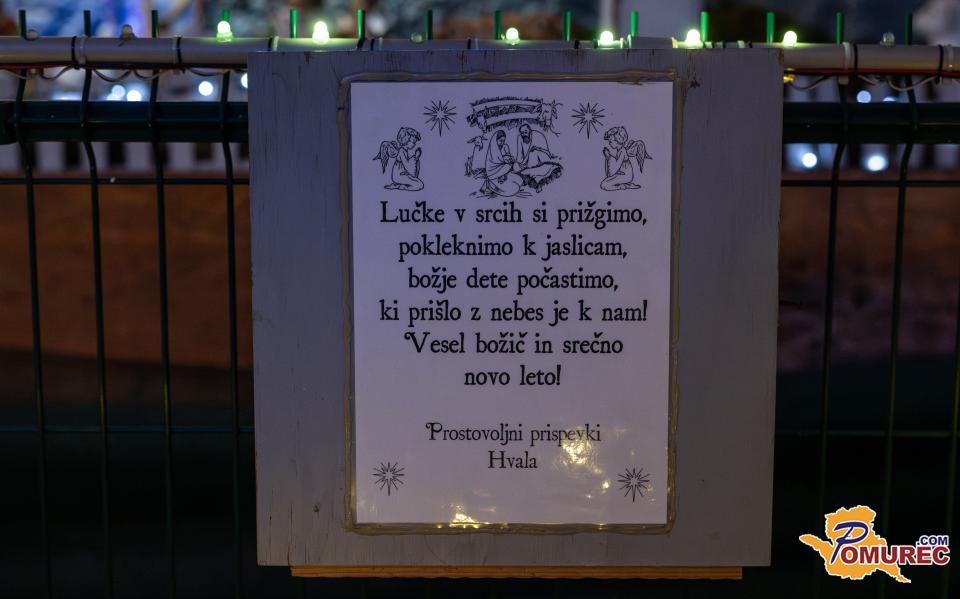 Lučke v srcih si prižgimo,
pokleknimo k jaslicam,
božje dete počastimo,
ki prišlo z nebes je k nam!
Vesel božič in srečno
novo leto!
Prostovoljni prispevki
Hvala
POMUREC.COM